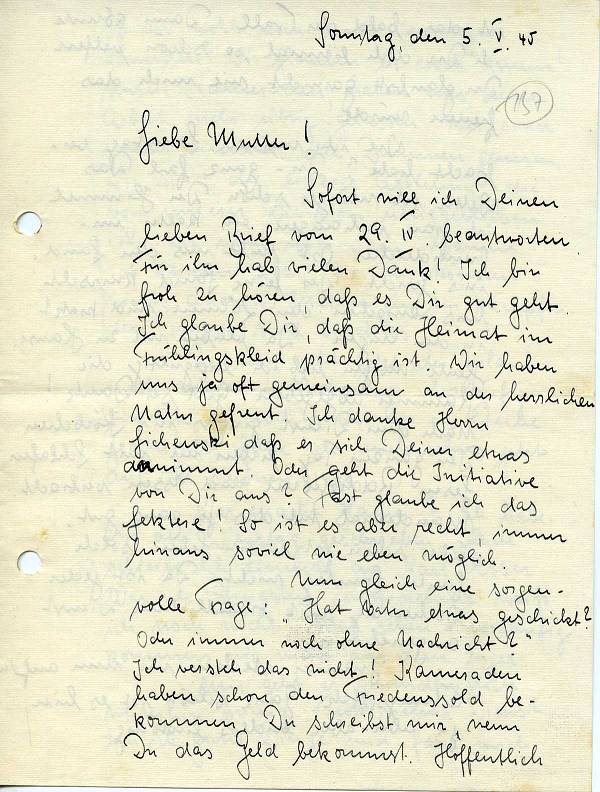 Sonntag, den 5. V. 45
137
Liebe Mutter!
Sofort will ich Deinen
lieben Brief vom 29. IV. beantworten.
Für ihn hab vielen Dank! Ich bin
froh zu hören, daß es Dir gut geht.
Ich glaube Dir, daß die Heimat im
Frühlingskleid prächtig ist. Wir haben
uns ja oft gemeinsam an der herrlichen
Natur gefreut. Ich danke Herrn
daß er sich Deiner etwas
annimmt. Oder geht die Initiative
von Dir aus? Fast glaube ich das
letztere! So ist es aber recht, immer
hinaus soviel wie eben möglich.
Nun gleich eine sorgen-
volle Frage: "Hat etwas geschickt?
Oder immer noch ohne Nachricht?"
Ich versteh das nicht! Kameraden
haben schon den Friedenssold be-
kommen. Du schreibst mir, wenn
Du das Geld bekommst. Hoffentlich